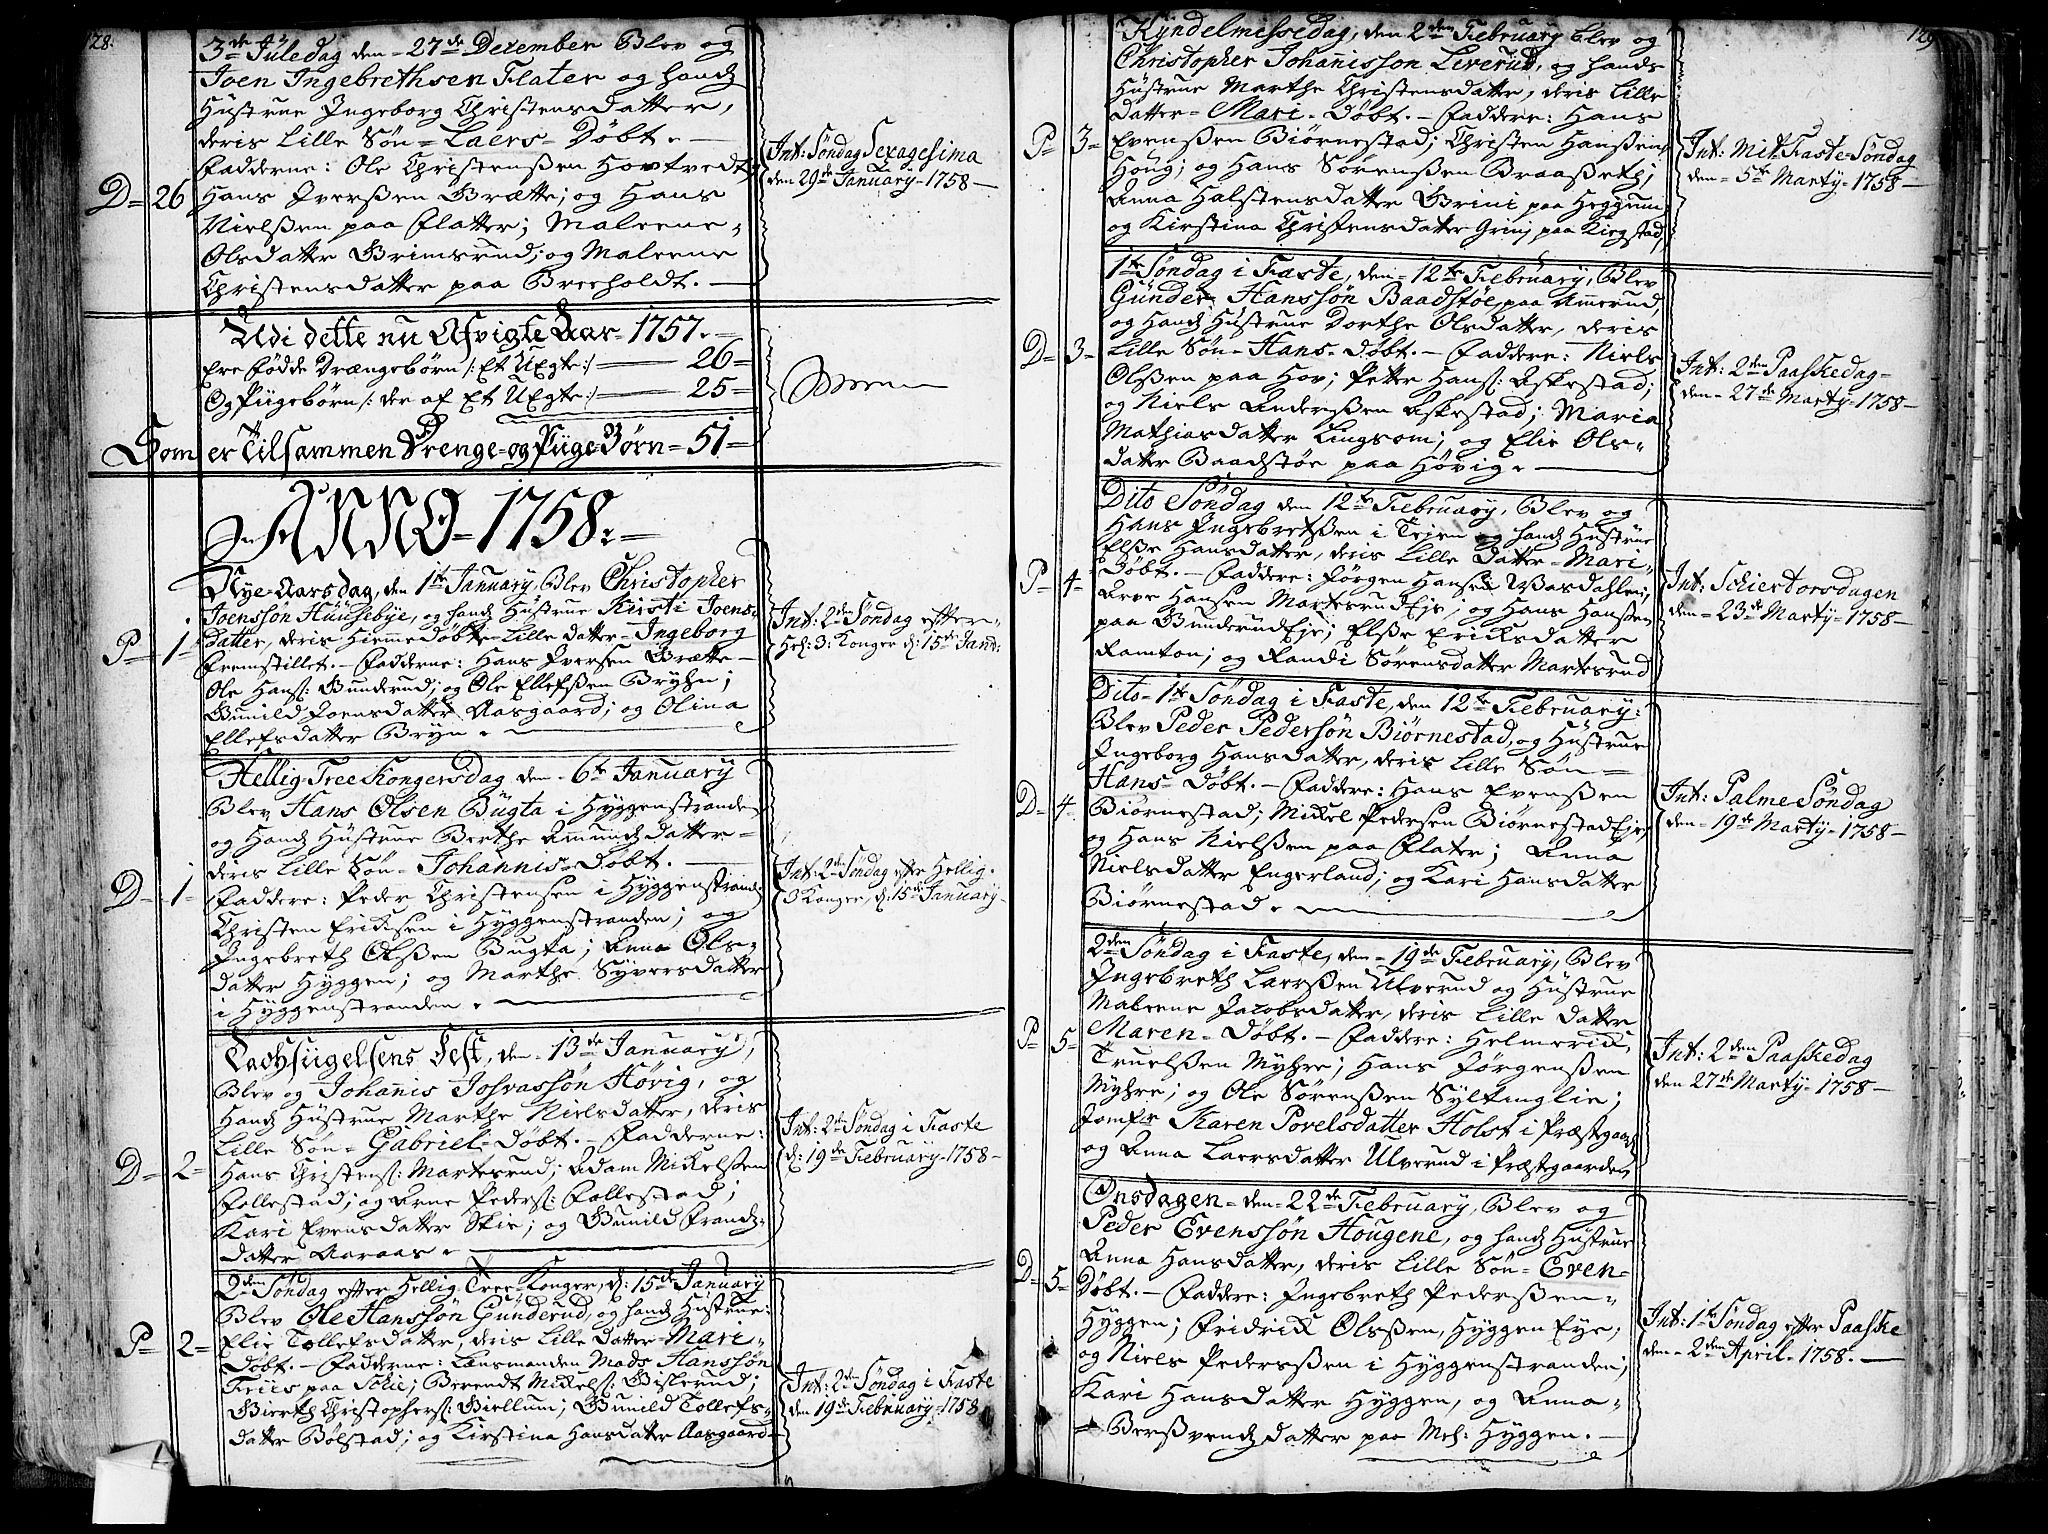 128.
3de Juledag den 27de December Blev og
Joen Ingebrethsen Flater og hands
Hustrue Ingeborg Christensdatter,
deris Lille Søn Laers Døbt.
Fadderne: Ole Christensßen Hovtvedt,
D 26 Hans Iverßen Brætte, og Hans
Nielßen paa Flatter; Maleene
Olsdatter Brimsrud; og Maleene
Christensdatter paa Breeholdt.
Int: Søndag Sexagesima
den 29de January 1758
Udi dette nu Afvigte Aar 1757.
ere Fødde Drængebørn /: Et Uægte :/ 26
Og Piigebørn /: der af Et Uægte :/ 25
Som er Tilsammen Drenge og Piige Børn 51
In ANNO 1758.
Nye Aarsdag, den 1te January, Blev Christopher
Joenssøn Huusebye, og hands Hustrue Kirsti Joens-
P 1 datter, deris Hiemedøbte Lille datter Ingeborg
Fremstillet. Fadderne: Hans Iversen Brætte
Ole Hans: Bunderud; og Ole Ellefsßen Bryhn;
Gunild Joensdatter Aasgaard; og Olina
Ellefsdatter Bryn.
Int: 2den Søndag efter
Hel: 3: Konger d: 15de Janu:
Hellig Tree Kongersdag den 6te January
Blev Hans Olsen Bugta i Hyggenstranden
og Hands Hustrue Berthe Amunds datter
deris Lille Søn Johannis Døbt.
D 1 Faddere: Peder Christensen i Hyggenstrand:
Christen Eriksen i Hyggenstranden; og
Ingebreth Olsßen Bugta; Anna Ols-
datter Hyggen; og Marthe Syversdatter
i Hyggenstranden.
Int: 2den Søndag efter Hellig.
3 Konger, d: 15de January
Tachsigelsens Fest, den 13de January,
Blev og Johanis Josvassøn Høvig, og
Hands Hustrue Marthe Nielsdatter, deris
Lille Søn Gabriel Døbt. Fadderne:
D 2 Hans Christens: Martesrud; Adam Mickelßen
Follestad; og Arne Peders: Follestad;
Kari Evensdatter Skie; og Gunild Frands-
datter Aaraas.
Int: 2den Søndag i Faste
d: 19de February 1758
2den Søndag efter Hellig Tree Konger, d: 15de January
Blev Ole Hanssøn Gunderud, og hands Hustrue:
P 2 Elie Tollefsdatter, deris Lille datter Mari
Døbt. Fadderne: Lansmanden Mads Hanssøn
Friis paa Schie; Berendt Mickels: Bislerud;
Bierth Christophers: Biellum; Gunild Tollefs-
datter Bølstad; og Kirstina Hansdatter Aasgaard
Int: 2den Søndag i Faste
den 19de February 1758
129
Kyndelmessedag, den 2den February Blev og
Christopher Johanisson Liverud, og hands
Hustrue Marthe Christensdatter, deris Lille
datter Mari Døbt. Faddere: Hans
P 3 Evensßen Biørnestad; Christen Hanßen
Houg; og Hans Sørensßen Braaßeth;
Anna Halstensdatter Grini paa Heggum
og Kirstina Christensdatter Grinj paa Kiegstad
Int: Mit Faste Søndag
den 5te Marty 1758
1te Søndag i Faste, den 12te February, Blev
Gunder Hanssøn Baadstøe, paa Amerud,
og Hands Hustrue Dorthe Olsdatter, deris
D 3 Lille Søn Hans Døbt. Faddere: Niels
Olsßen paa Hov; Petter Hans: Askestad;
og Niels Andersßen Askestad; Maria
Mathiasdatter Lingsom; og Elie Ols-
datter Baadstøe paa Høvig.
Int: 2den Paaskedag
den 27de Marty 1758
Dito Søndag den 12te February, Blev og
Hans Ingebretßen i Teien og hands Hustrue
Elße Hansdatter, deris Lille datter Mari
P 4 Døbt. Faddere: Jørgen Hansen Wasdahlen,
Arve Hansen Martesrud Eje; og Hans Hansen
paa Bunderud Eje; Elße Eriksdatter
Ramton; og Randi Sørensdatter Martesrud
Int: Schiertorsdagen
den 23de Marty 1758
Dito 1te Søndag i Faste, den 12te February:
Blev Peder Pedersøn Biørnestad, og Hustrue
Ingeborg Hansdatter, deris Lille Søn
Hans Døbt. Faddere: Hans Evensßen
D 4 Biørnestad; Mickel Pedersen Biørnestad Eje;
og Hans Nielßen paa Flater; Anna
Nielsdatter Engerland; og Kari Hansdatter
Biørnestad.
Int: Palme Søndag
den 19de Marty 1758
2den Søndag i Faste, den 19de February, Blev
Ingebreth Laersßen Ulverud og Hustrue
Maleene Jacobsdatter, deris Lille datter
P 5 Maren Døbt. Faddere: Helmerik
Truelsßen Myhre; Hans Jørgensßen
Myhre; og Ole Sørensßen Syltinglie;
Jomfr Karen Povelsdatter Holst i Præstegaard
og Anna Laersdatter Ulverud i Præstgaarden
Int: 2den Paaskedag
den 27de Marty 1758
Onsdagen den 22de February, Blev og
Peder Evenssøn Hougene, og hands Hustrue
Anna Hansdatter, deris Lille Søn Even
D 5 Døbt. Faddere: Ingebreth Pedersßen
Hyggen; Fridrik Olsßen, Hyggen Eye;
og Niels Pedersßen i Hyggenstranden;
Kari Hansdatter Hyggen, og Anna
Berßvends datter paa Mel: Hyggen.
Int: 1te Søndag efter Paaske
den 2den April 1758.